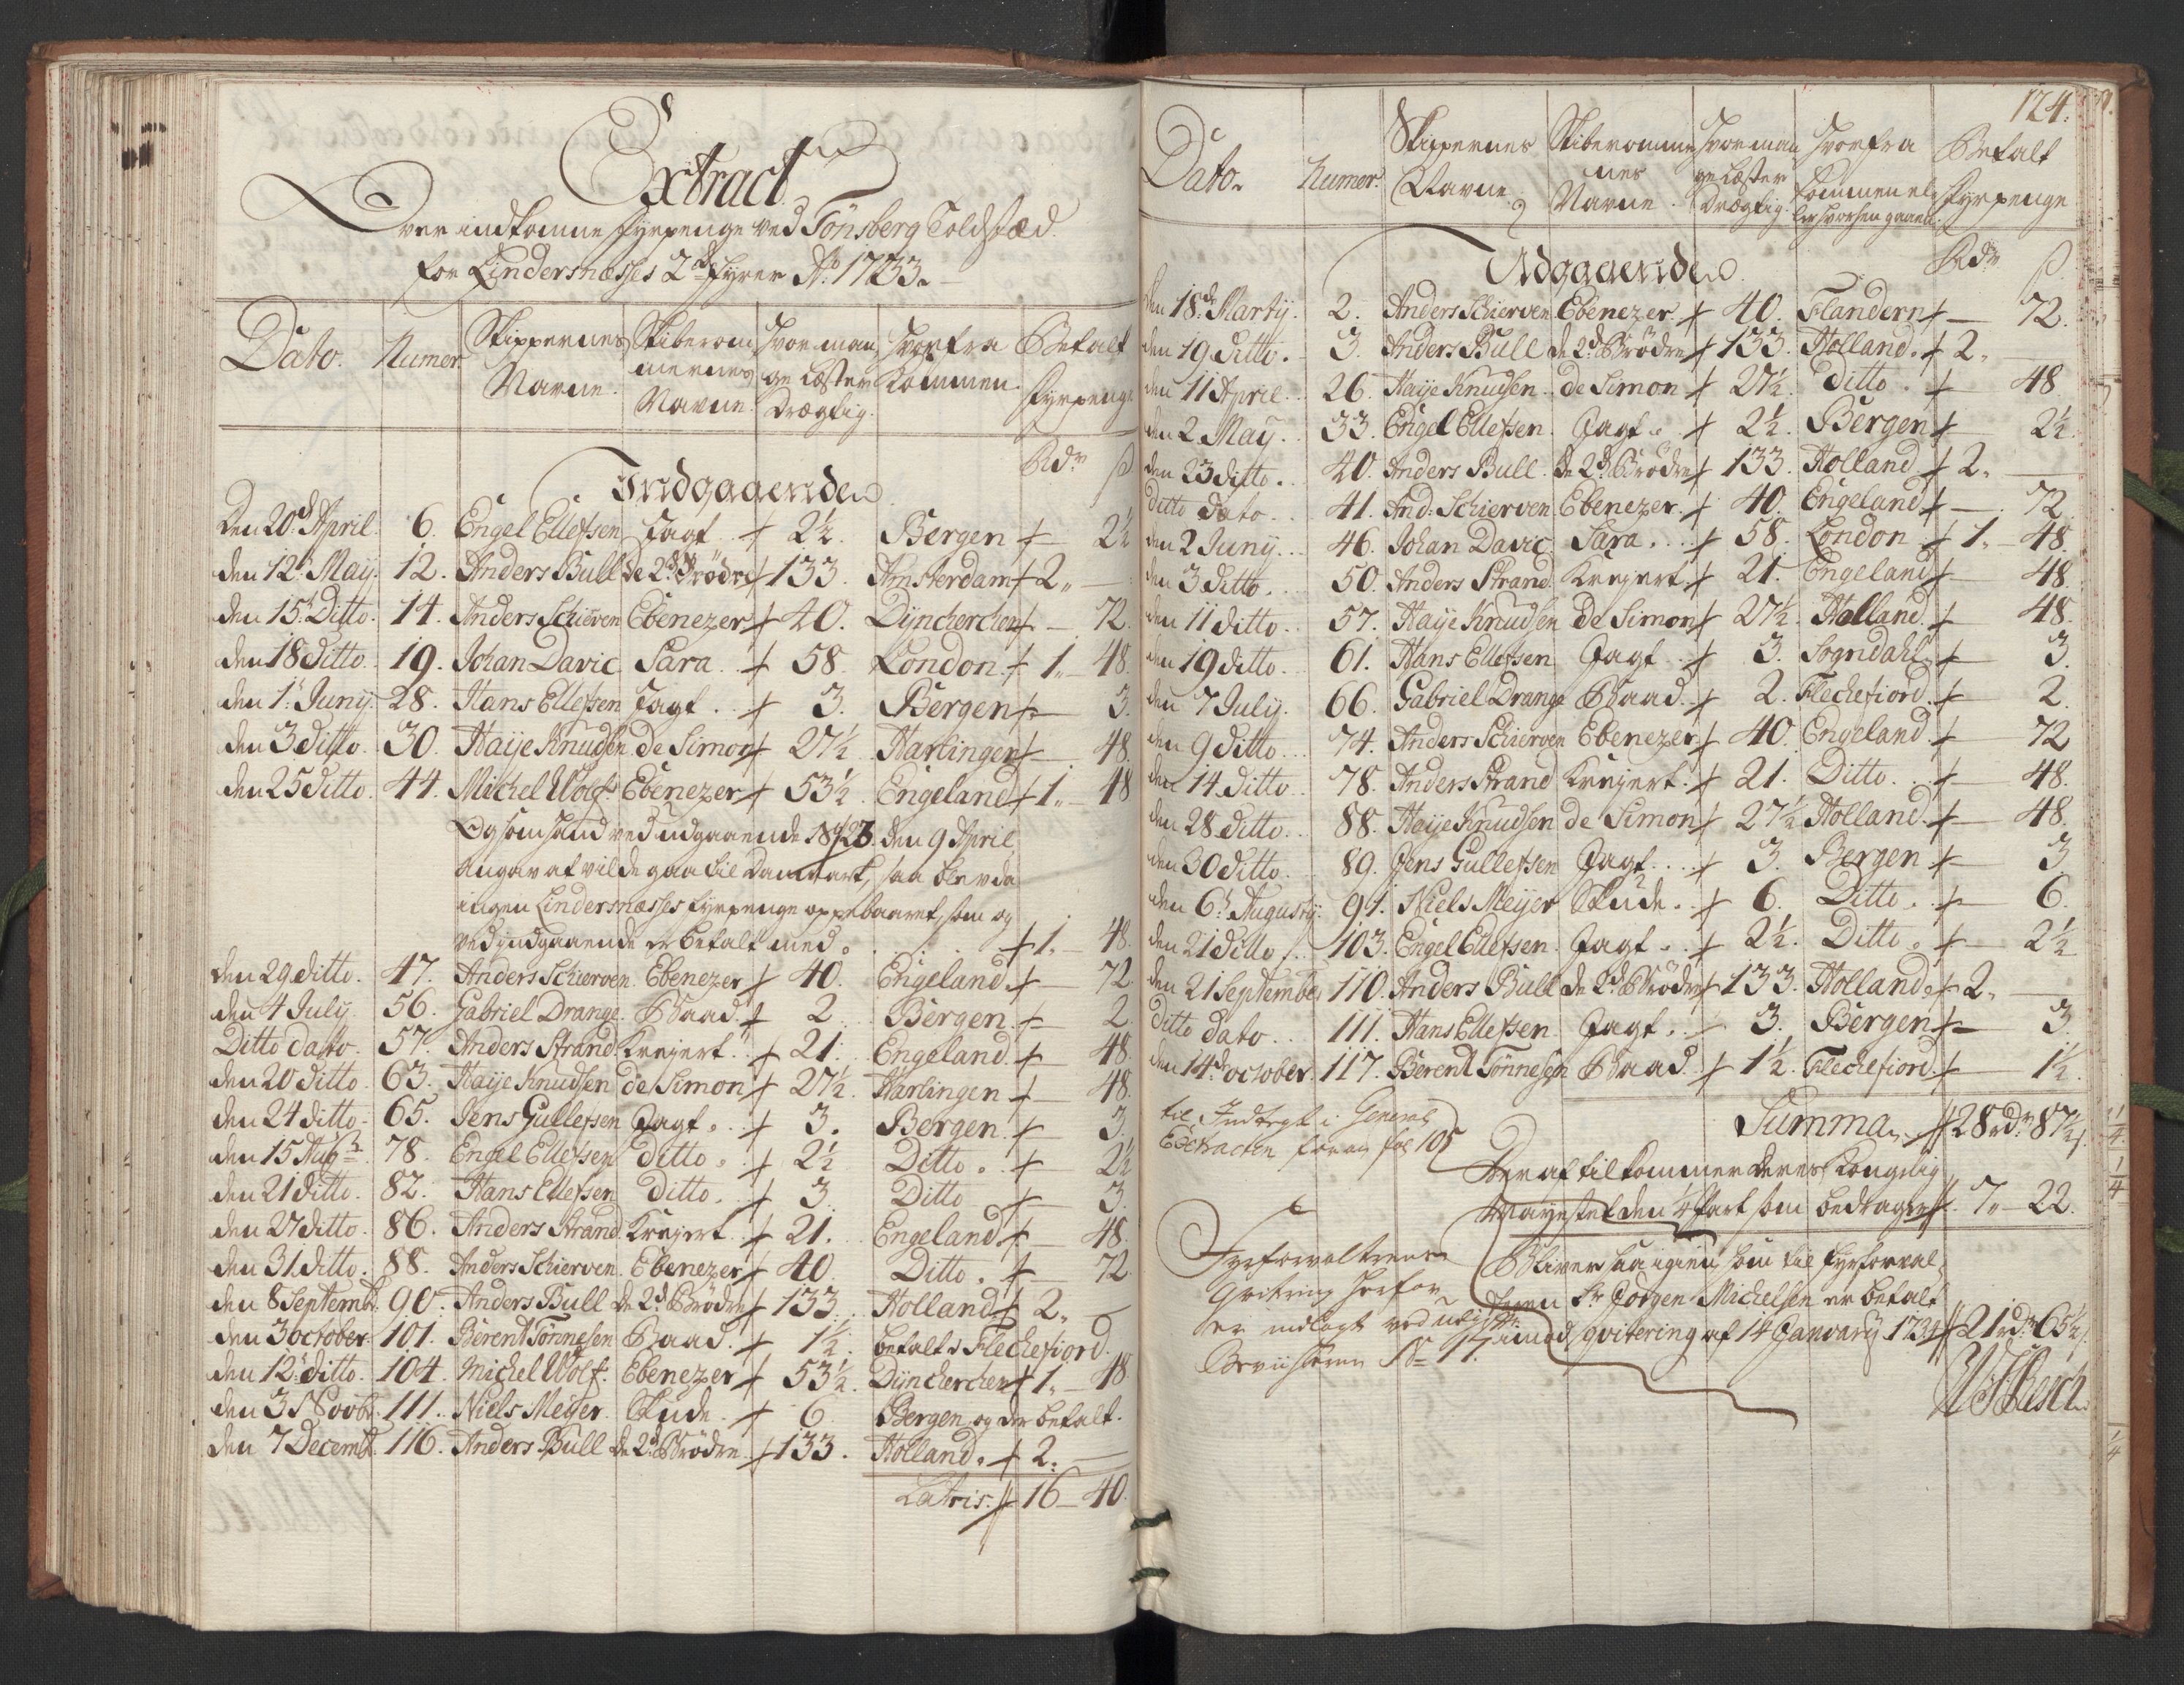 Extract
Over indkomne fyrpenge ved Tönsberg Toldstæd
for Lindersnæsses 2de fyrer Ao. 1733.
Dato. Numer. Skippernes Navne. Skiberommernes Navne. Hvor mange Læster Drægtig. Hvorfra kommen. Betalt fyrpenge
Rdr ß
Indgaaende
Den 20de April. 6. Engel Ellefsen Jagt 2½. Bergen 2½
den 12te May. 12. Anders Bull de 2de Brödre 133. Amsterdam 2,, —
den 15t. Ditto. 14. Anders Schierven Ebenezer 40. Dynchercher — 72.
den 18 ditto. 19. Johan Davic Sara 58. London 1,, — 48.
den 1t. Juny. 28. Hans Ellefsen Jagt. 3. Bergen — 3.
den 3 ditto. 30. Haije Knudsen de Simon 27½ Harlingen — 48.
den 25 ditto. 44. Michel Wolf. Ebenezer 53½. Engeland 1,, — 48
Og som hand ved udgaaende No 23. den 9 April
angav at vilde gaa til Danmark, saa blev da
ingen Lindersnæsses fyrpenge oppebaaret, som og
ved indgaaende er betalt med. 1,, — 48.
den 29 ditto. 47. Anders Schierven. Ebenezer 40. Engeland — 72
den 4 July. 56. Gabriel Drange. Baad 2 Bergen — 2
Ditto dato. 57. Anders Strand. Krejert. 21. Engeland 48.
den 20 ditto. 63. Haije Knudsen de Simon 27½. Harlingen — 48.
den 24 ditto. 65. Jens Gullefsen Jagt. 3. Bergen 3.
den 15 Augt. 78. Engel Ellefsen ditto. 2½ Ditto. 2½
den 21 ditto. 82. Hans Ellefsen ditto. 3. Ditto 3.
den 27 ditto. 86. Anders Strand. Krejert. 21. Engeland 48.
den 31 ditto. 88. Anders Schierven. Ebenezer 40 Ditto. 72
den 8 Septembr. 90. Anders Bull de 2de Brödre 133. Holland 2,, —
den 3 october. 101. Berent Tönnesen Baad. 1½. betalt i Flechefiord.
den 12t. ditto. 104. Michel Wolf. Ebenezer 53½. Dynchercher 1,, — 48
den 3 Novbr. 111. Niels Meyer. Skude. 6. Bergen og der betalt.
den 7 Decembr. 116. Anders Bull de 2de Brödre. 133. Holland. 2.
Latris. 16 — 40.
124.
Dato. Numer. Skippernes Navne. Skiberommernes Navne. Hvor mange Læster Drægtig. Hvorfra kommen eller hvorhen gaaen. Betalt fyrpenge
Rdr ß
Udgaaende
den 18de Martij. 2. Anders Schierven Ebenezer 40. Flandern — 72.
den 19 ditto. 3. Anders Bull de 2de Brödre 133. Holland. 2,,
den 11 April. 26. Haije Knudsen. de Simon 27½. ditto. 48
den 2 May. 33. Engel Ellefsen. Jagt. 2½. Bergen 2½.
den 23 ditto. 40. Anders Bull. de 2de Brödre 133. Holland 2,,
ditto dato. 41. And: Schierven Ebenezer. 40. Engeland — 72
den 2 Juny. 46. Johan Davic. Sara. 58. London 1,, — 48.
den 3 ditto. 50. Anders Strand Krejert. 21. Engeland 48.
den 11 ditto. 57. Haije Knudsen de Simon 27½. Holland. 48.
den 19 ditto. 61. Hans Ellefsen Jagt 3. Sogndahl. 3.
den 7 July. 66. Gabriel Drange Baad. 2. Flechefiord. 2.
den 9 ditto. 74. Anders Schierven Ebenezer 40. Engeland. 72
den 14 ditto. 78. Anders Strand Krejert. 21. Ditto. 48.
den 28 ditto. 88. Haije Knudsen de Simon 27½ Holland. 48.
den 30 ditto. 89. Jens Gullefsen Jagt. 3. Bergen 3
den 6t. Augusty. 94. Niels Meyer Skude. 6. Ditto. 6.
den 21 ditto. 103. Engel Ellefsen. Jagt. 2½. Ditto. 2½
den 21 September 110. Anders Bull de 2de Brödre 133. Holland. 2,,
ditto dato. 111. Hans Ellefsen. Jagt. 3. Bergen 3.
den 14de october. 117. Berent Tönnesen Baad. 1½. Flechefiord. 1½.
Summa. 28 rdr. 87½ ß
til Indtegt i General
Extracten foran fol 105
Der af tilkommer deres Kongelig
Mayestet den ¼ Part som bedrager 7,, — 22.
Bliver saa igien som til fyrforval-
teren Sr. Jörgen Michelsen er betalt
imod qvitering af 14 January 1734 21 rdr. 65½ ß
Fyrforvalterens
Qvitering herfor
er indlagt ved udgifts
Beviiserne No 17.